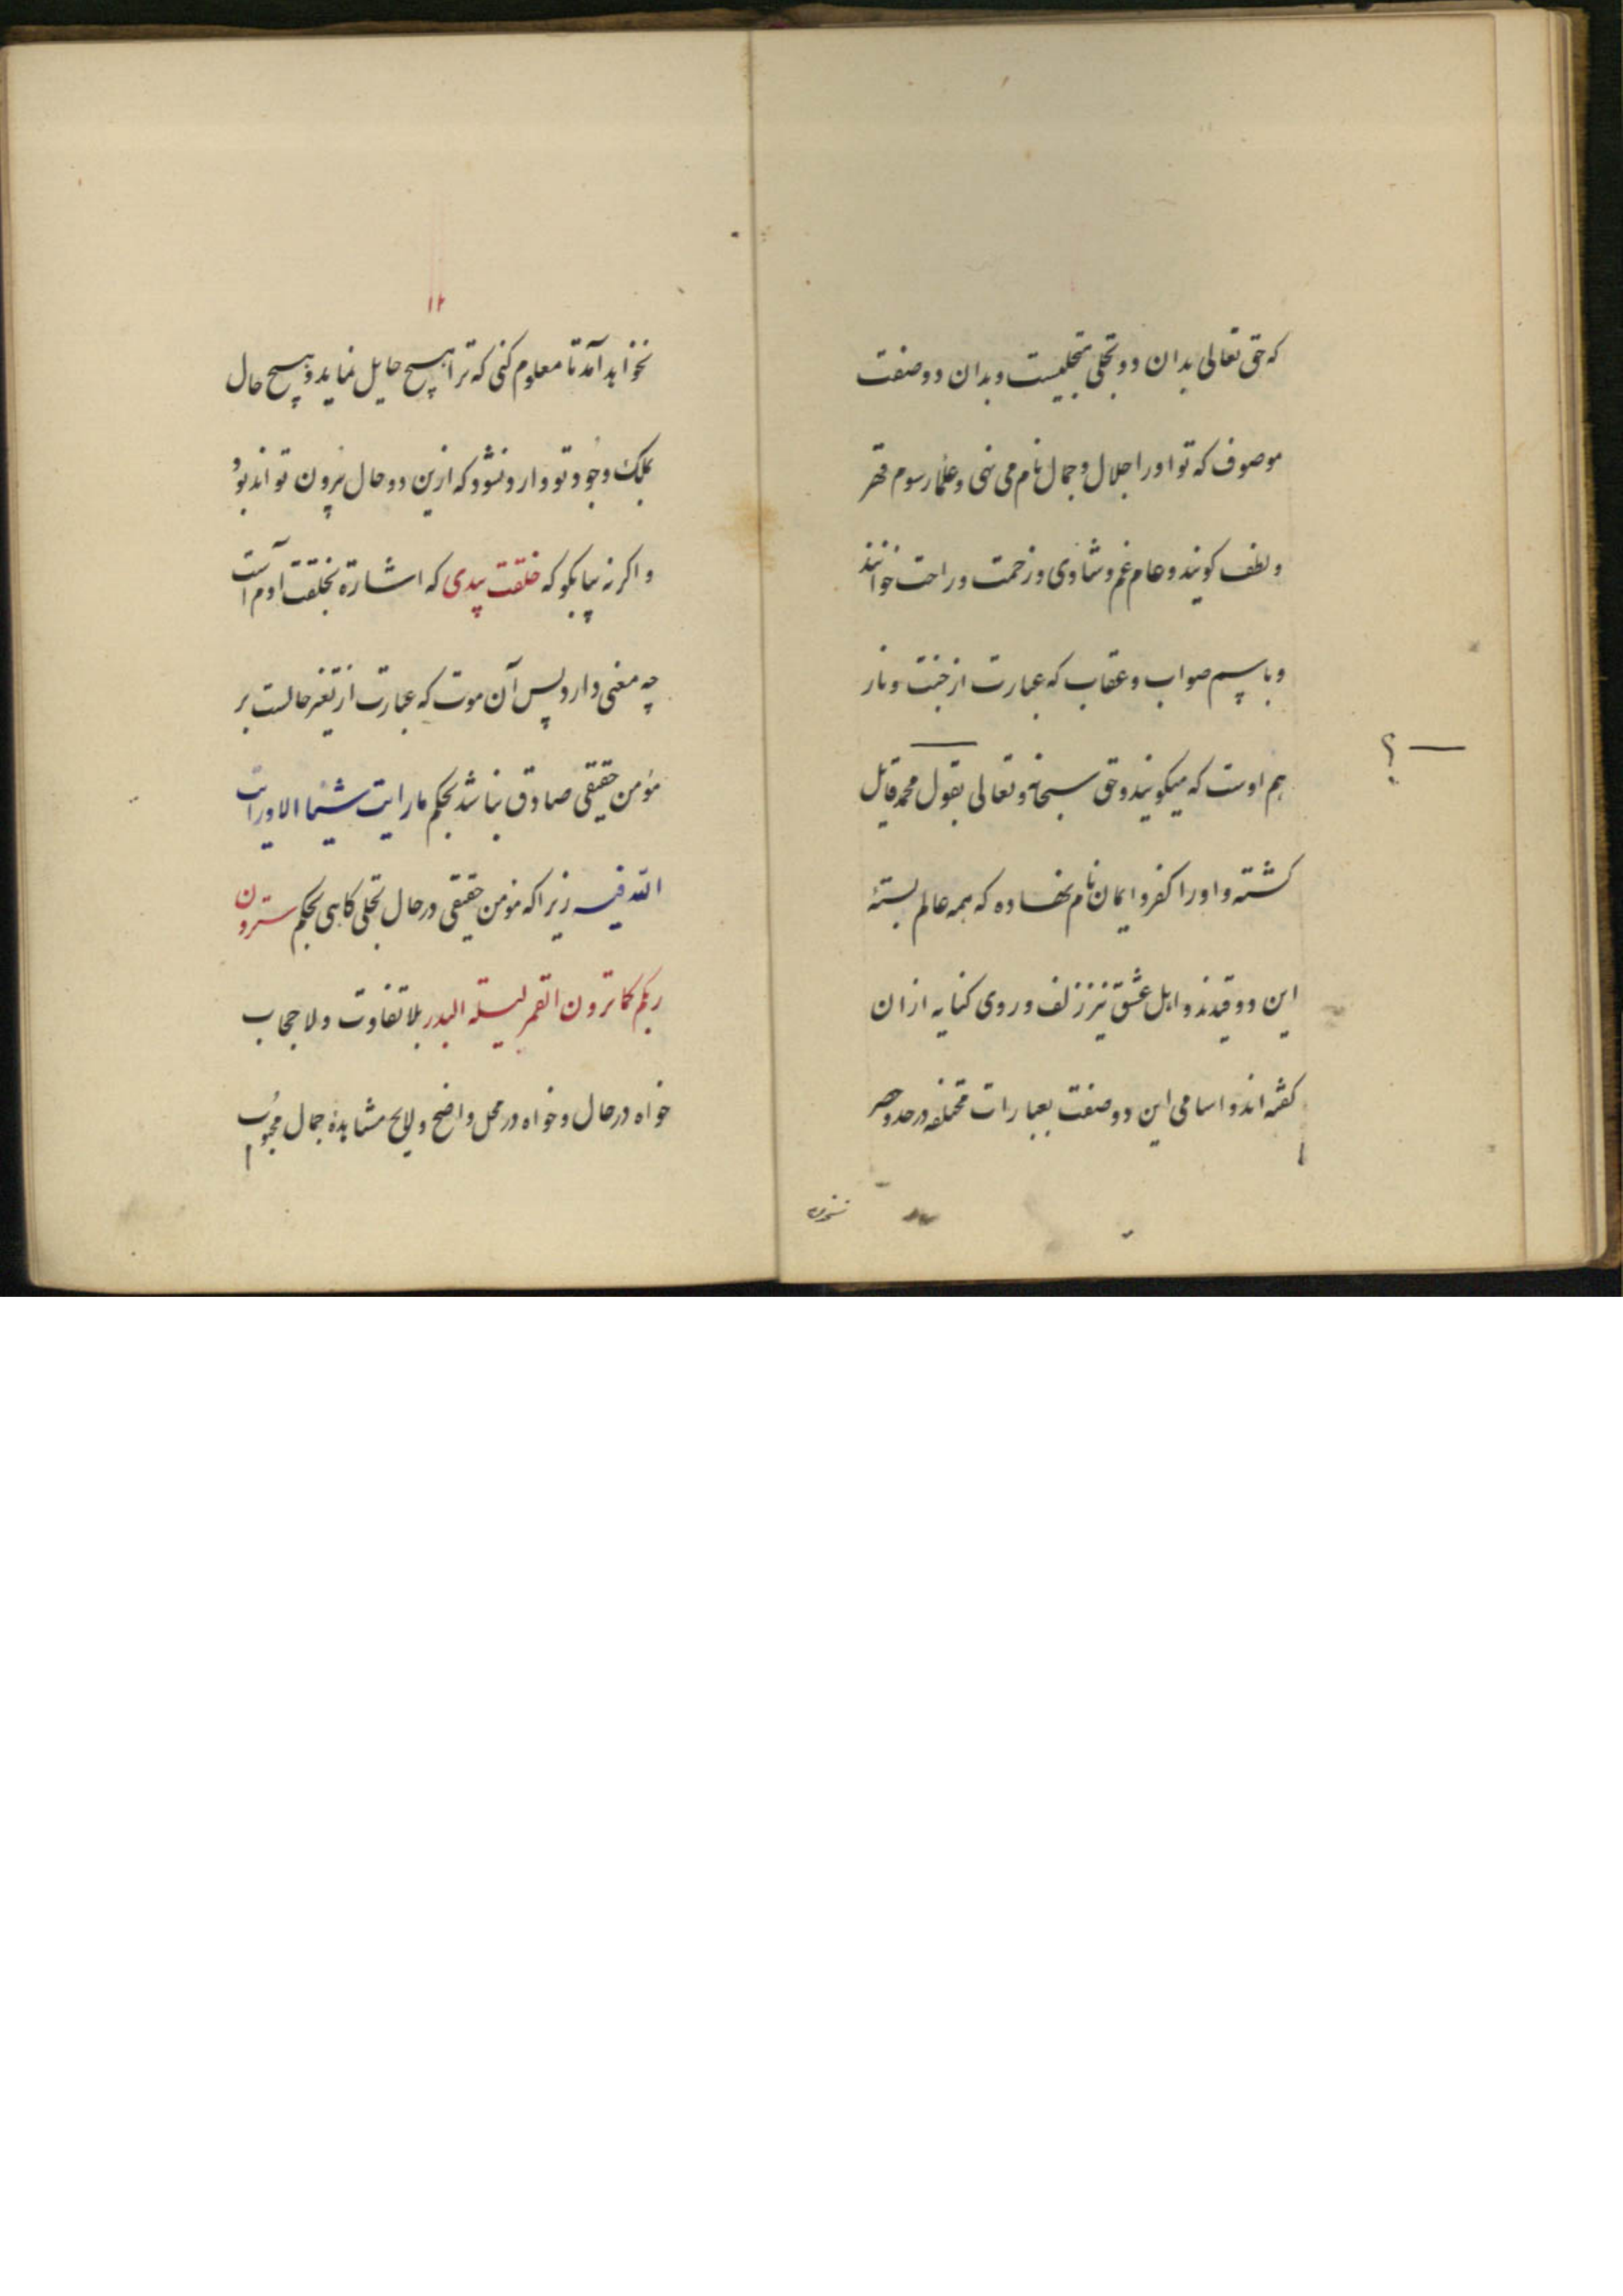 که حق تعالی بدان دو تجلی متجلیست و بدان دو صفت
موصوف که تو او را جلال و جمال نام می نهی و علمار سوم قهر
و لطف کویند و عام غم و شادی و زحمت و راحت خوانند
و باسم صواب و عقاب که عبارت از جنت و نار
هم اوست که میکویند و حق سبحانه و تعالی بقول محمد قایل
کشته و او را کفر و ایمان نام نهاده که همه عالم بستهٔ
این دو قیدند و اهل عشق نیز زلف و روی کنایه ازان
کفته اند و اسامی این دو صفت بعبارات مختلفه در حد و حصر
؟
۱۲
نخواهد آمد تا معلوم کنی که ترا هیچ حایل نماید و هیچ حال
بملک وجود تو وارد نشود که ازین دو حال بیرون تواند بود
و اکر نه بیا بکو که خلقت بیدی که اشارة بخلقت آدم است
چه معنی دارد پس آن موت که عبارت از تغیر حالست بر
مؤمن حقیقی صادق نباشد بحکم ما رایت شیئا الا و رایت
الله فیه زیرا که مؤمن حقیقی در حال تجلی کاهی بحکم سترون
ربکم کما ترون القمر لیلة البدر بلا تفاوت و لا حجاب
خواه در حال و خواه در محل واضح و لایح مشاهدهٔ جمال محبوب